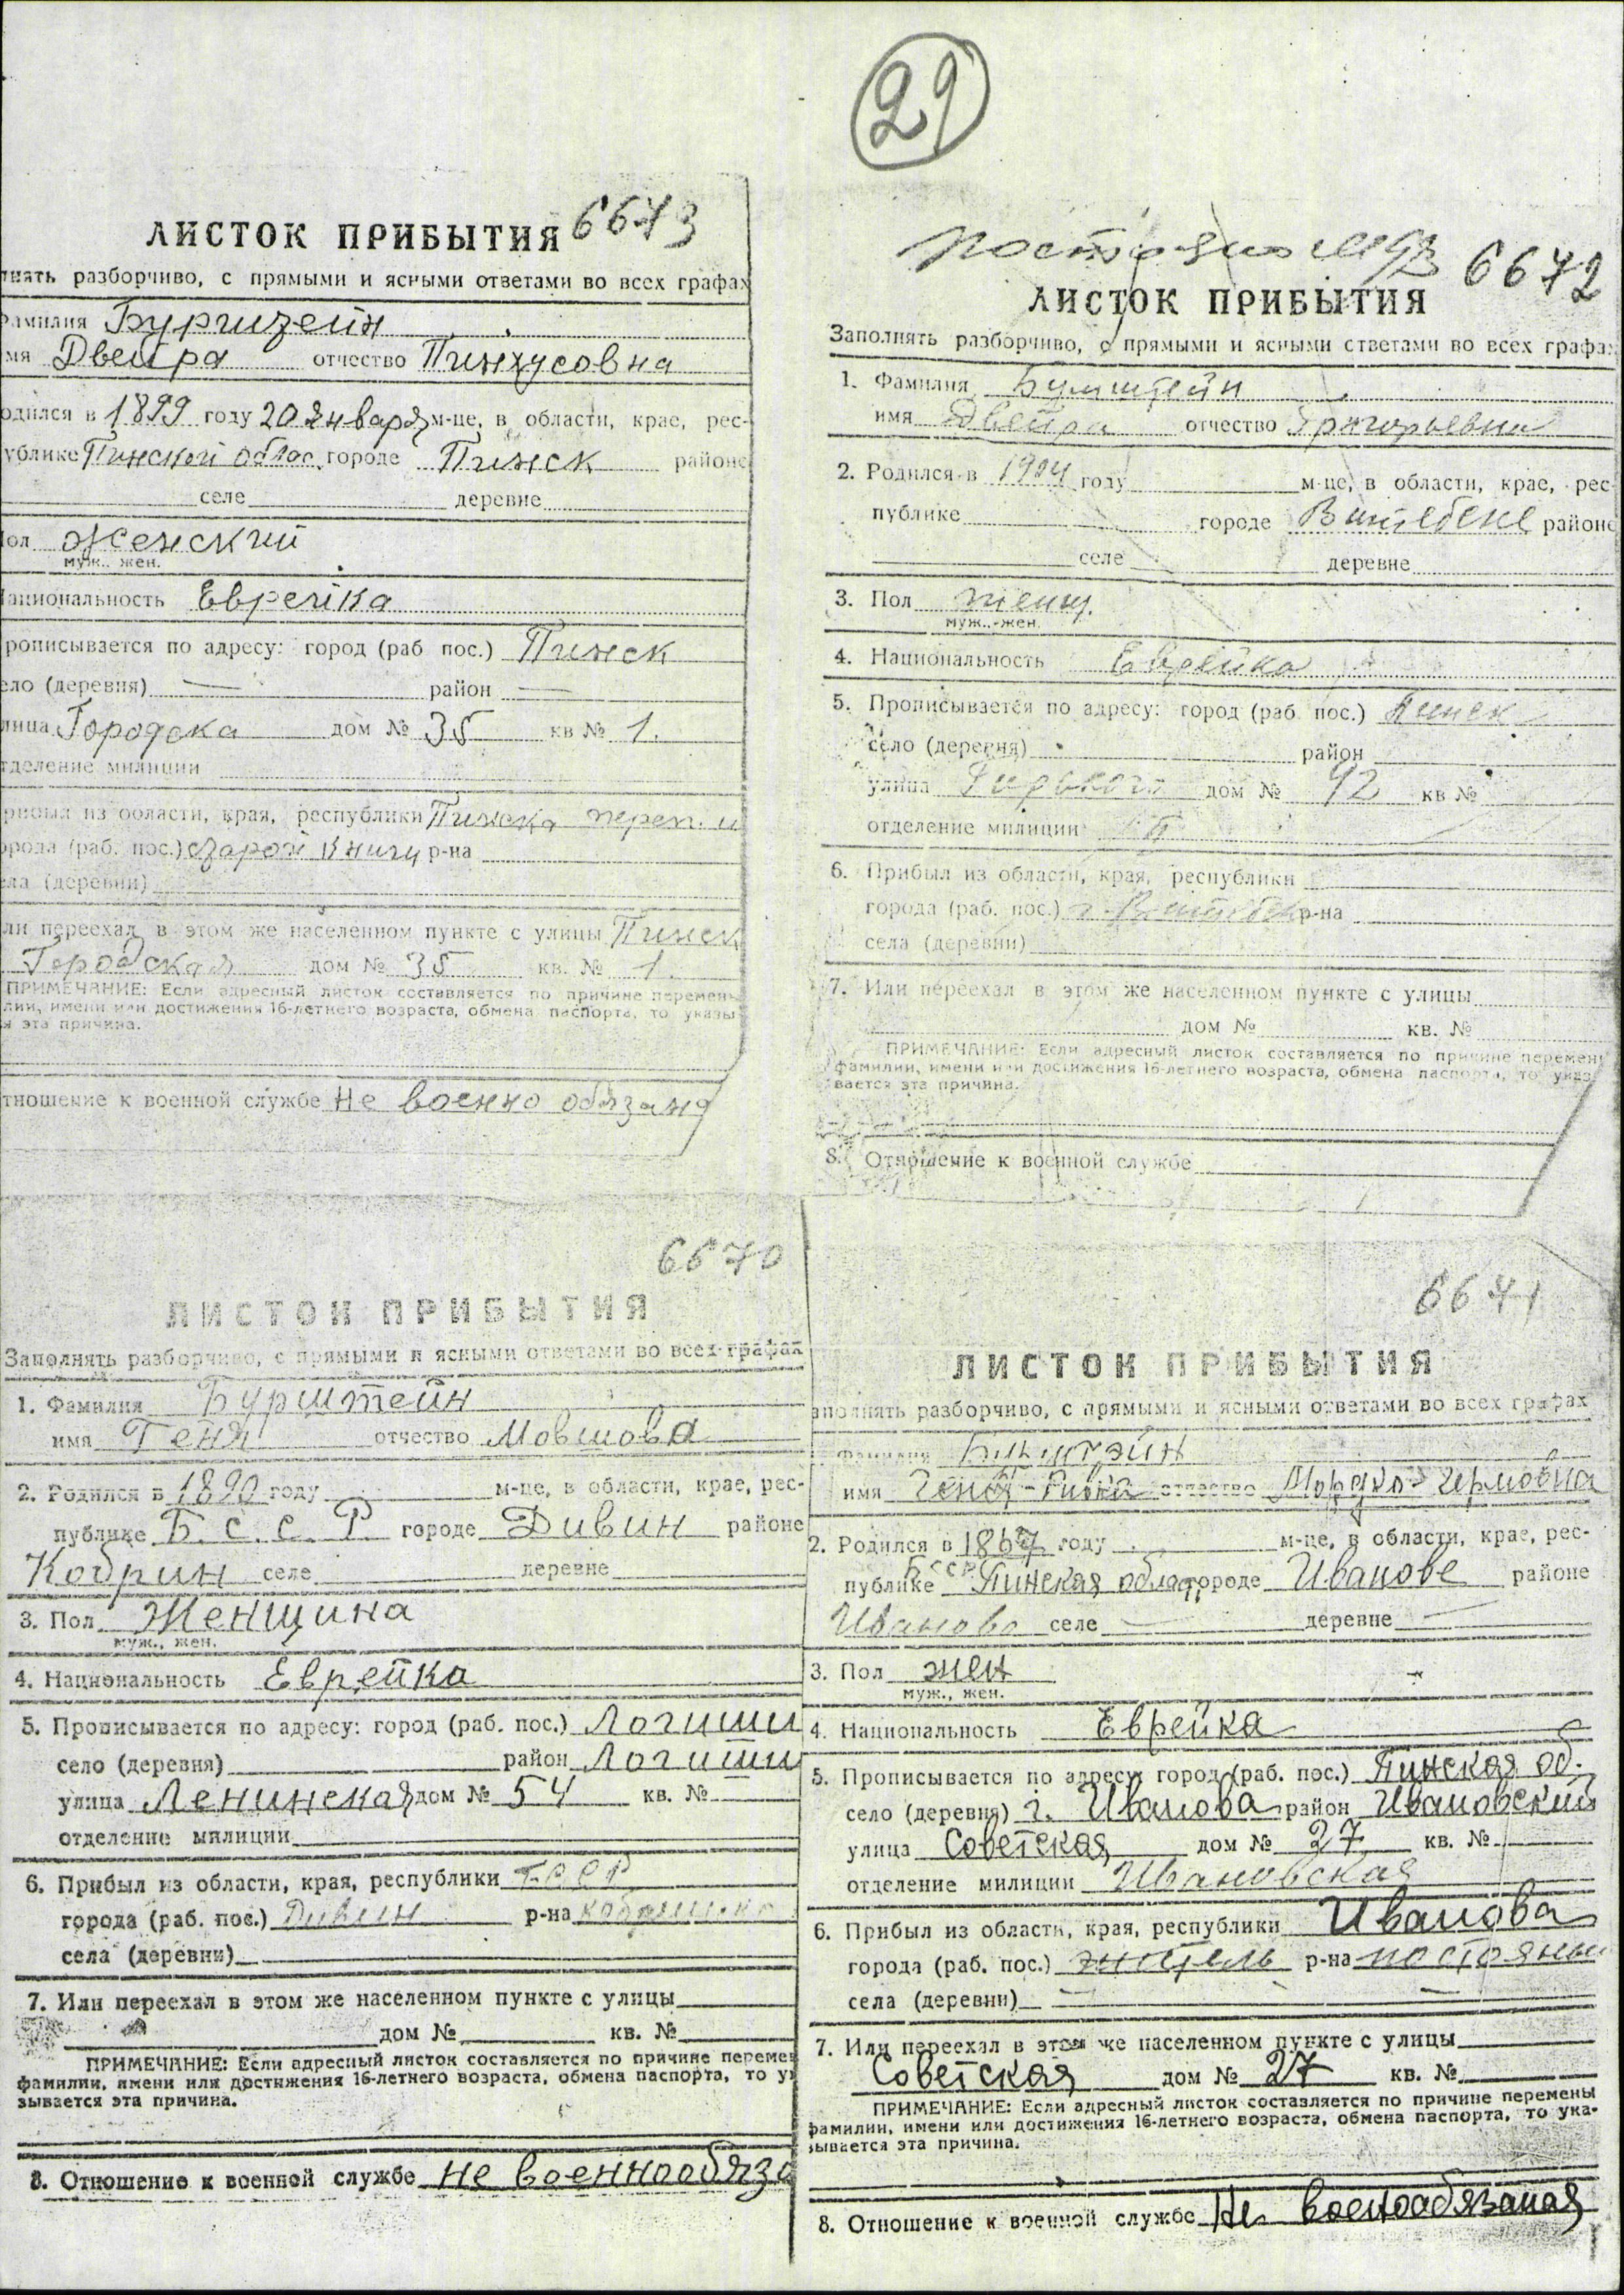 29
ЛИСТОК ПРИБЫТИЯ 6673
лнять разборчиво, с прямыми и ясными ответами во всех графах
Фамилия Бурштейн
мя Двейра отчество Пинхусовна
одился в 1899 году 20 января м-це, в области, крае, рес-
ублике Пинской облас. городе Пинск районе
селе деревне
ол женский
муж., жен.
Национальность Еврейка
рописывается по адресу: город (раб пос.) Пинск
ело (деревня) — район —
лица Городска дом № 35 кв № 1.
тделение милиции
рибыл из области, края, республики Пинска
орода (раб. пос.) старой книги р-на
ела (деревни)
ли переехал в этом же населенном пункте с улицы Пинск
Городская дом № 35 кв. № 1.
ПРИМЕЧАНИЕ: Если адресный листок составляется по причине перемены
лии, имени или достижения 16-летнего возраста, обмена паспорта, то указы
я эта причина.
тношение к военной службе Не военно обязана
6672
ЛИСТОК ПРИБЫТИЯ
Заполнять разборчиво, с прямыми и ясными ответами во всех графах
1. Фамилия
имя Двейра отчество Григорьевна
2. Родился в 1904 году м-це, в области, крае, рес-
публике городе Витебске районе
селе деревне
3. Пол женщ.
муж.,-жен.
4. Национальность Еврейка
5. Прописывается по адресу: город (раб. пос.) Пинск
село (деревня) район
улица дом № 92 кв №
отделение милиции
6. Прибыл из области, края, республики
города (раб. пос.) г. Витебск р-на
села (деревни)
7. Или переехал в этом же населенном пункте с улицы
дом № кв. №
ПРИМЕЧАНИЕ: Если адресный листок составляется по причине перемены
фамилии, имени или достижения 16-летнего возраста, обмена паспорта, то указ
вается эта причина.
8. Отношение к военной службе
6670
ЛИСТОК ПРИБЫТИЯ
Заполнять разборчиво, с прямыми и ясными ответами во всех графах
1. Фамилия Бурштейн
имя Геня отчество Мовшова
2. Родился в 1890 году м-це, в области, крае, рес-
публике Б.С.С.Р. городе Дивин районе
Кобрин селе деревне
3. Пол Женщина
муж., жен.
4. Национальность Еврейка
5. Прописывается по адресу: город (раб. пос.) Логишин
село (деревня) район Логишин
улица Ленинская дом № 54 кв. №
отделение милиции
6. Прибыл из области, края, республики БССР
города (раб. пос.) Дивин р-на
села (деревни)
7. Или переехал в этом же населенном пункте с улицы
дом № кв. №
ПРИМЕЧАНИЕ: Если адресный листок составляется по причине перемен
фамилии, имени или достижения 16-летнего возраста, обмена паспорта, то у
зывается эта причина.
8. Отношение к военной службе не военнообяза
6671
ЛИСТОК ПРИБЫТИЯ
аполнять разборчиво, с прямыми и ясными ответами во всех графах
Фамилия
имя отчество
2. Родился в 1867 году м-це, в области, крае, рес-
публике БССР Пинская облас городе Иванове районе
Иваново селе — деревне —
3. Пол жен
муж., жен.
4. Национальность Еврейка
5. Прописывается по адресу: город (раб. пос.) Пинская об.
село (деревня) г. Иванова район Ивановский
улица Советская дом № 27 кв. №
отделение милиции Ивановская
6. Прибыл из области, края, республики Иванова
города (раб. пос.) житель р-на постояный
села (деревни) — —
7. Или переехал в этом же населенном пункте с улицы
Советская дом № 27 кв. №
ПРИМЕЧАНИЕ: Если адресный листок составляется по причине перемены
фамилии, имени или достижения 16-летнего возраста, обмена паспорта, то ука-
зывается эта причина.
8. Отношение к военной службе Не военообязаная